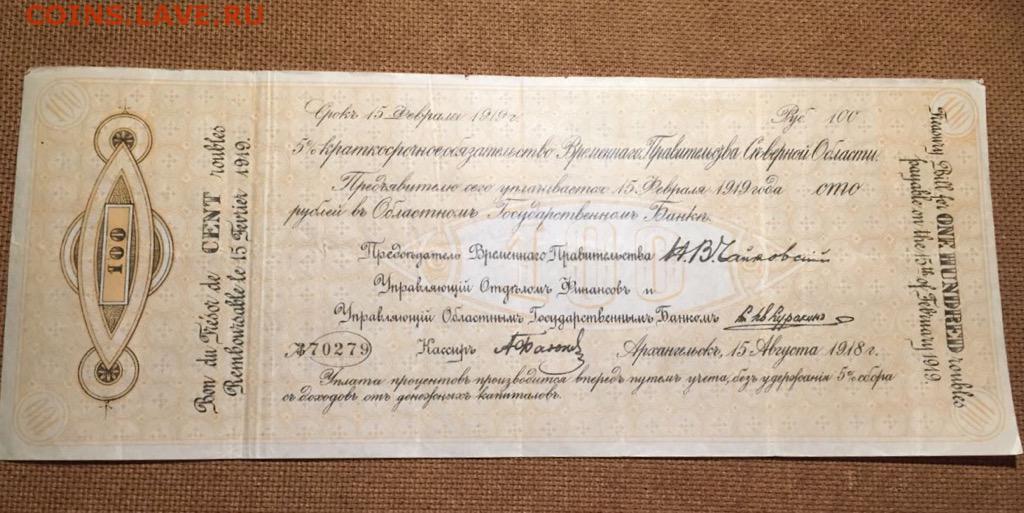 COINS.LAVE.РУ
100
100
Bon du Trésor de CENT roubles
Remboursable le 15 Fevrier 1919.
Срокъ 15 Февраля 1919 г.
Руб. 100
5% краткосрочное обязательство Временнаго Правительства Сѣверной Области.
Предъявителю сего уплачивается 15 Февраля 1919 года сто
рублей въ Областномъ Государственномъ Банкѣ.
100
Предсѣдатель Временнаго Правительства Н. В. Чайковскій
Управляющій Отдѣломъ Финансовъ и
Управляющій Областнымъ Государственнымъ Банкомъ Куракинъ
№ 70279 Кассиръ
Архангельскъ, 15 Августа 1918 г.
Уплата процентовъ производится впередъ путемъ учета, безъ удержанія 5% сбора
съ доходовъ отъ денежныхъ капиталовъ.
Treasury Bill for ONE HUNDRED roubles
payable on the 15th of February 1919.
100
100
100